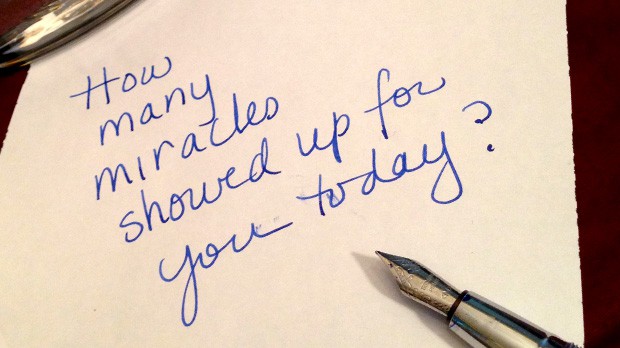 How
many
miracles
showed up for
you today?